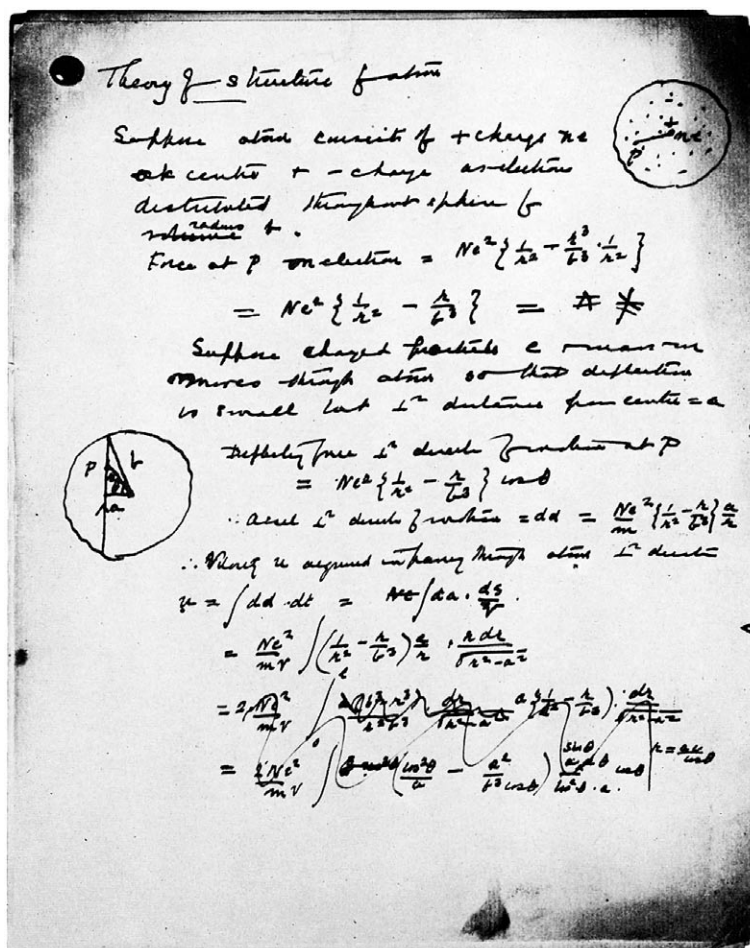 Theory of structure of atom
Suppose atom consists of + charge ne
at centre + - charge as electrons
distributed throughout sphere of
radius b.
+ ne
P
Force at P on electron = Ne² {1/r² - r³/b³ · 1/r²}
= Ne² {1/r² - r/b³} =
Suppose charged particle e + mass m
moves through atom so that deflection
is small but ⊥ʳ distance from centre = a
P b
θ
a
Deflecting force ⊥ʳ direction of motion at P
= Ne² {1/r² - r/b³} cos θ
∴ accel ⊥ʳ direction of motion = dd = Ne²/m {1/r² - r/b³} a/r
∴ Velocity u acquired in passing through atom ⊥ʳ direction
u = ∫ dd · dt = ∫ da · ds/V
= Ne²/mV ∫ (1/r² - r/b³) a/r · r dr/√r²-a²
= 2 Ne²/mV ∫ a {1/r² - r/b³} · dr
= 2Ne²/mV ∫ (cos²θ/a - a²/b³ cos θ) sin θ